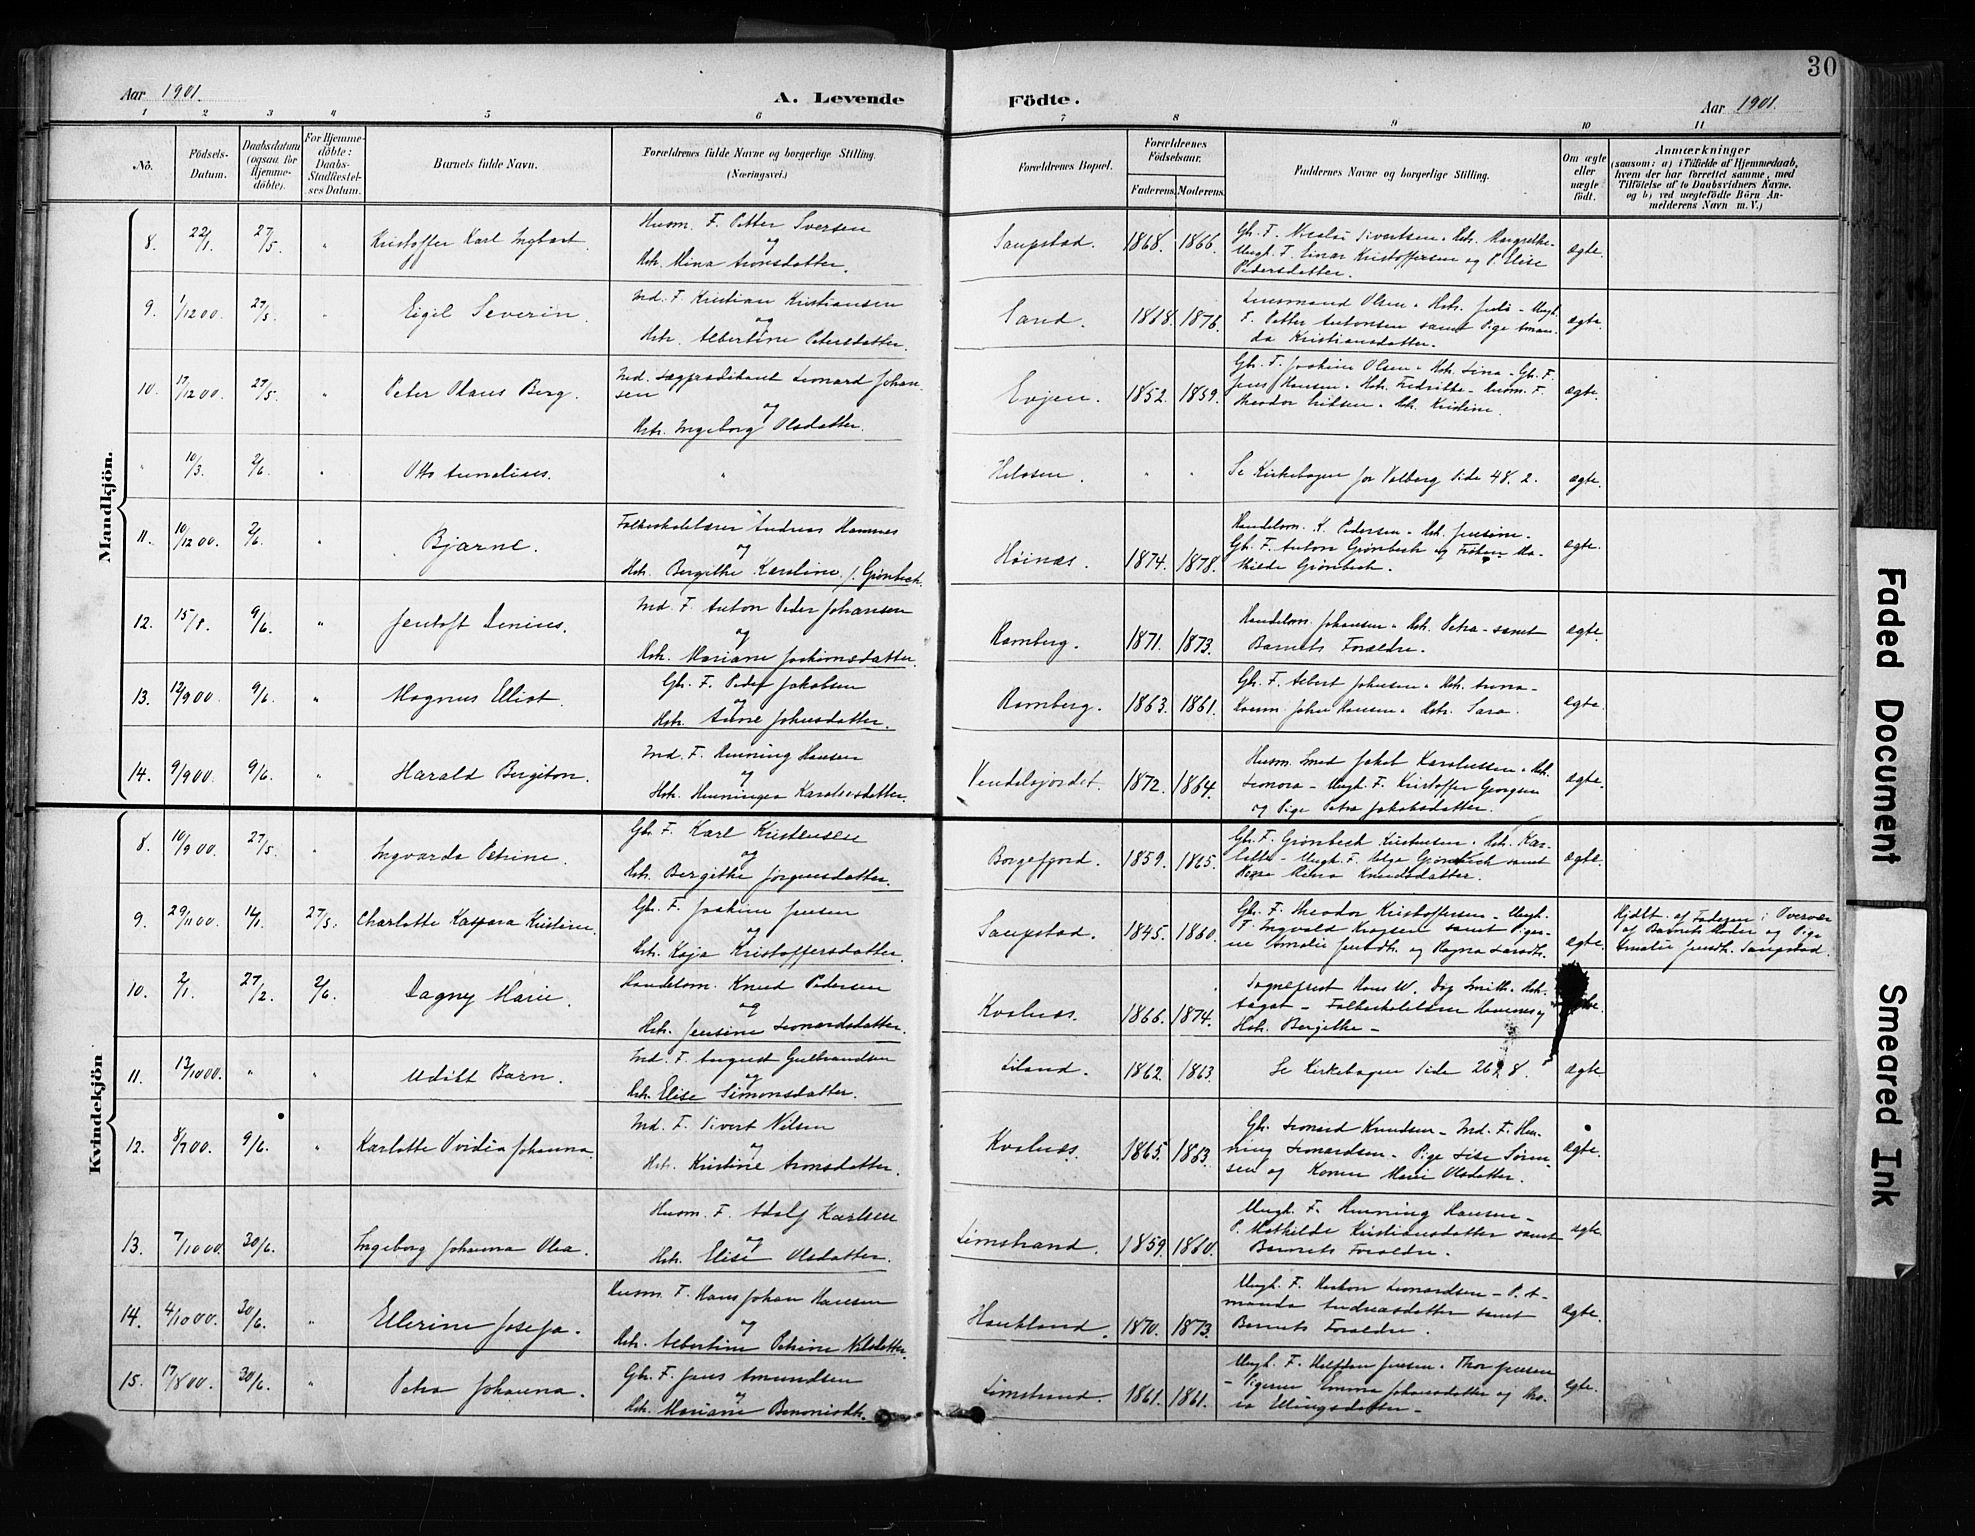 30
Aar 1901.
A. Levende
Födte.
Aar 1901.
1 2 3 4 5 6 7 8 9 10 11
No.
Födsels-Datum.
Daabsdatum (ogsaa for Hjemme-döbte).
For Hjemme-döbte: Daabs-Stadfæstel-ses Datum.
Barnets fulde Navn.
Forældrenes fulde Navne og borgerlige Stilling.
(Næringsvei.)
Forældrenes Bopæl.
Forældrenes Födselsaar.
Faderens. Moderens.
Faddernes Navne og borgerlige Stilling.
Om ægte eller uægte födt.
Anmærkninger
(saasom: a) i Tilfælde af Hjemmedaab,
hvem der har forrettet samme, med
Tilföielse af to Daabsvidners Navne.
og b) ved uægtefödte Börn An-
melderens Navn m. V.)
Mandkjön.
8. 22/1. 27/5. " Kristoffer Karl Ingbart
Husm. F. Petter Sversen
og
Hstr. Mina Aronsdatter.
Saupstad. 1868. 1866.
Pedersdatter.
ægte.
9. 1/12 00. 27/5. " Eigil Severin.
Ind. F. Kristian Kristiansen
og
Hstr. Albertine Petersdatter.
Sand. 1868. 1876.
Lensmand Olsen
F. Petter Antonsen samt Pige Aman-
da Kristiansdatter.
ægte.
10. 17/12 00. 27/5. " Peter Olaus Berg.
Ind. Lægprædikant Leonard Johan-
sen
og
Hstr. Ingeborg Olsdatter.
Evjen. 1852. 1859.
Gb. F. Joakim Olsen Hstr. Lina - Gb. F.
Jens Hansen Hstr. Fredrikke - Husm. F.
Theodor Nilsen Hstr. Kristine.
ægte.
" 10/3. 2/6. " Otto Aunelius.
"
Helosen. " "
Se Kirkebogen for Valberg Side 48. 2.
ægte.
11. 10/12 00. 2/6. " Bjarne.
Folkeskolelærer Andreas Hamnes
og
Hstr. Bergithe Karoline f. Grønbech.
Høinæs. 1874. 1878.
Handelsm. K. Pedersen - Hstr. Jensine -
Gb. F. Anton Grønbech og Frøken Ma-
thilde Grønbech.
ægte.
12. 15/8. 9/6. " Jentoft Denius.
Ind. F. Anton Peder Johansen
og
Hstr. Mariane Joakimsdatter.
Ramberg. 1871. 1873.
Handelsm. Johansen Hstr. Petra - samt
Barnets Forældre.
ægte.
13. 12/9 00. 9/6. " Magnus Elliot.
Gb. F. Peder Jakobsen
og
Hstr. Anne Johnsdatter.
Ramberg. 1863. 1861.
Gb. F. Albert Johnsen Hstr. Anna -
Husm. John Hansen Hstr. Sara.
ægte.
14. 9/9 00. 9/6. " Harald Bergiton.
Ind. F. Henning Hansen
og
Hstr. Henningea Karolusdatter.
Vendelsjordet. 1872. 1864.
Husm. Smed Jakob Karolussen Hstr.
Leonora - Ungk. F. Kristoffer Georgsen
og Pige Petra Jakobsdatter.
ægte.
Kvindekjön
8. 10/9 00. 27/5. " Ingvarda Petrine.
Gb. F. Karl Kristensen
og
Hstr. Bergithe Jørgensdatter.
Borgefjord. 1859. 1865.
Gb. F. Grønbech Kristensen Hstr. Kar-
Knudsdatter.
ægte.
9. 29/11 00. 14/1. 27/5. Charlotte Kaspara Kristine.
Gb. F. Joakim Jensen
og
Hstr. Kaja Kristoffersdatter.
Saupstad. 1845. 1860.
Gb. F. Theodor Kristoffersen - Ungk.
F. Ingvald Krogsen samt Piger-
ne Amalie Jensdtr. og Ragna Larsdtr.
ægte.
Hjdbt. af Faderen i Overvær
af Barnets Moder og Pige
Amalie Jensdtr. Saupstad.
10. 2/1. 27/2. 2/6. Dagny Marie.
Handelsm. Knud Pedersen
og
Hstr. Jensine Leonardsdatter.
Kvalnæs. 1866. 1874.
Sogneprest Hans W. Smith Hstr.
Aagot - Folkeskolelærer Hamnes og
Hstr. Bergithe -
11. 13/10 00. " " Udøbt Barn.
Ind. F. August Gulbrandsen
og
Hstr. Elise Simonsdatter.
Liland. 1862. 1863.
Se Kirkebogen Side 26 8.
ægte.
12. 8/7 00. 9/6. " Karlotte Ovidia Johanna.
Ind. F. Sivert Nilsen
og
Hstr. Kristine Aronsdatter.
Kvalnæs. 1865. 1863.
Gb. Leonard Knudsen - Ind. F. Hen-
ning Leonardsen - Pige Lise Søren-
sen og Konen Marie Olsdatter.
ægte.
13. 7/10 00. 30/6. Ingeborg Johanna Olea.
Husm. F. Adolf Karlsen
og
Hstr. Elise Olsdatter.
Limstrand. 1859. 1860.
Ungk. F. Henning Hansen -
P. Mathilde Kristiansdatter samt
Barnets Forældre.
ægte.
14. 4/10 00. 30/6. " Ellerine Josefa.
Husm. F. Hans Johan Hansen
og
Hstr. Albertine Petrine Nilsdatter.
Haukland. 1870. 1873.
Ungk. F. Hakon Leonardsen - P. A-
manda Andreasdatter samt
Barnets Forældre.
ægte.
15. 17/8 00. 30/6. " Petra Johanna.
Gb. F. Jens Amundsen
og
Hstr. Mariane Benonisdtr.
Limstrand. 1861. 1861.
Ungk. F. Halfdan Jensen Thor Jensen
- Pigerne Emma Johansdatter og Ma-
ria Ellingsdatter -
ægte.
Faded Document
Smeared Ink